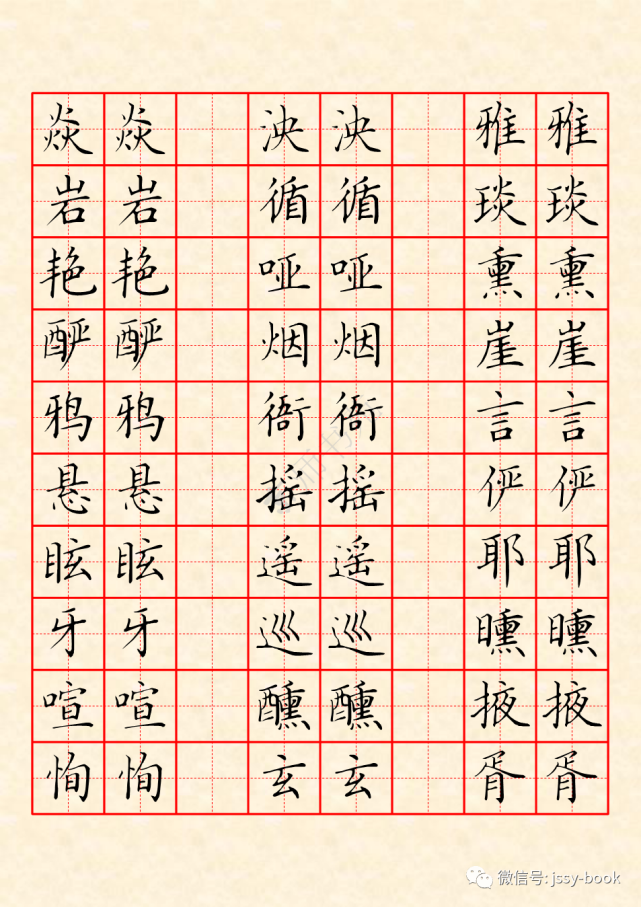 焱 焱 泱 泱 雅 雅
岩 岩 循 循 琰 琰
艳 艳 哑 哑 熏 熏
酽 酽 烟 烟 崖 崖
鸦 鸦 衙 衙 言 言
悬 悬 摇 摇 俨 俨
眩 眩 遥 遥 耶 耶
牙 牙 巡 巡 曛 曛
喧 喧 醺 醺 掖 掖
恂 恂 玄 玄 胥 胥
微信号: jssy-book